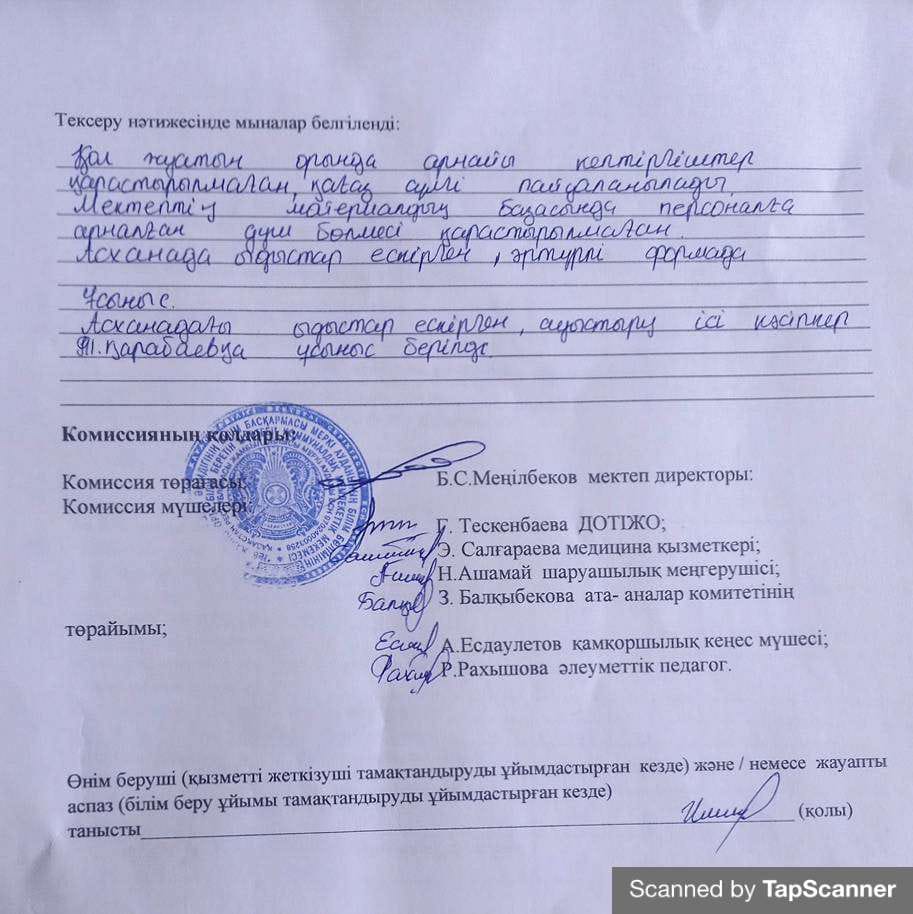 Тексеру нәтижесінде мыналар белгіленді:
Қол жуатын орында арнайы кептіргіштер
қарастырылмаған, қағаз сүлгі пайдаланылады.
Мектептің материалдық базасында персоналға
арналған душ бөлмесі қарастырылмаған.
Асханада ыдыстар ескірген, әртүрлі формада
Ұсыныс.
Асханадағы ыдыстар ескірген, ауыстыру ісі кәсіпкер
Т.Қарабаевқа ұсыныс берілді.
Комиссияның қолдары:
Комиссия төрағасы: Б.С.Меңілбеков мектеп директоры:
Комиссия мүшелері:
Г. Тескенбаева ДОТІЖО;
Э. Салғараева медицина қызметкері;
Н.Ашамай шаруашылық меңгерушісі;
З. Балқыбекова ата- аналар комитетінің
төрайымы;
А.Есдаулетов қамқоршылық кеңес мүшесі;
Р.Рахышова әлеуметтік педагог.
Өнім беруші (қызметті жеткізуші тамақтандыруды ұйымдастырған кезде) және / немесе жауапты
аспаз (білім беру ұйымы тамақтандыруды ұйымдастырған кезде)
танысты (қолы)
Scanned by TapScanner